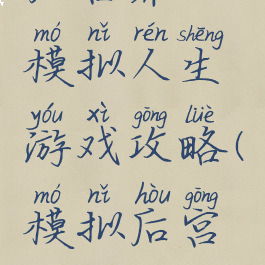 mó nǐ rén shēng
模拟人生
yóu xì gōng lüè
游戏攻略(
mó nǐ hòu gōng
模拟后宫